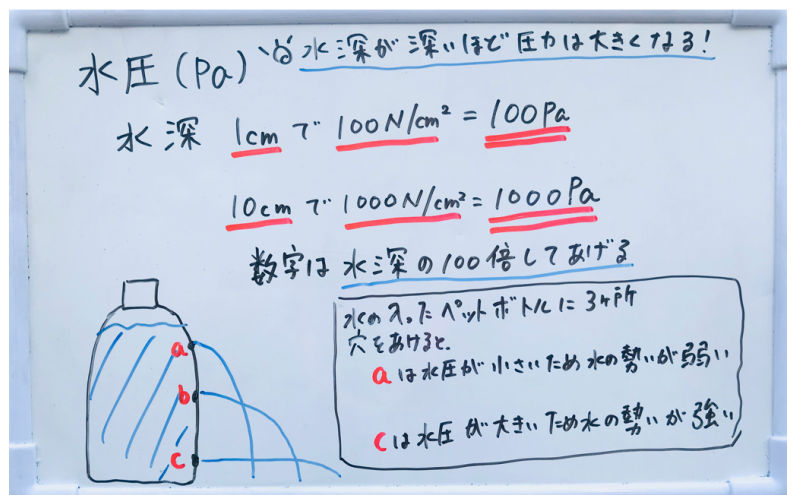 水圧(Pa) 水深が深いほど圧力は大きくなる!
水深 1cmで100N/cm²=100Pa
10cmで1000N/cm²=1000Pa
数字は水深の100倍してあげる
水の入ったペットボトルに3ヶ所
穴をあけると、
aは水圧が小さいため水の勢いが弱い
cは水圧が大きいため水の勢いが強い
a
b
c